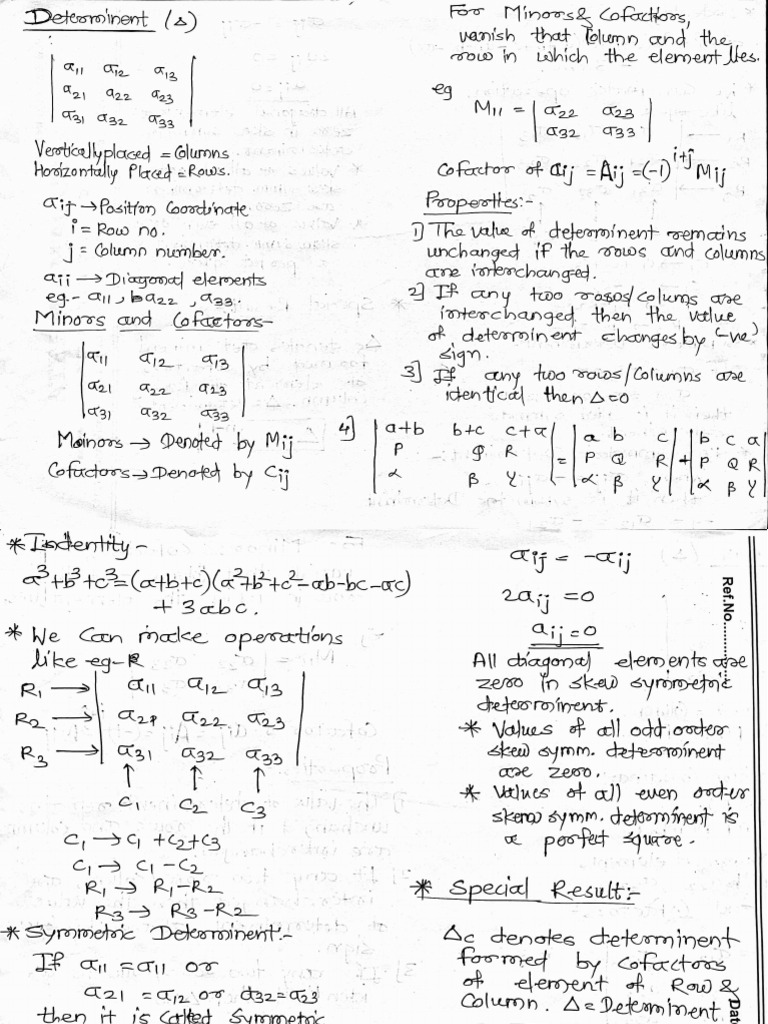 Determinent (Δ)
a11 a12 a13
a21 a22 a23
a31 a32 a33
Vertically placed = Columns
Horizontally Placed = Rows.
aij → Position Coordinate
i = Row no.
j = Column number.
aii → Diagonal elements
eg.- a11, a22, a33.
Minors and Cofactors-
a11 a12 a13
a21 a22 a23
a31 a32 a33
Minors → Denoted by Mij
Cofactors → Denoted by Cij
For Minors & Cofactors,
vanish that Column and the
row in which the element lies.
eg
M11 = | a22 a23 |
| a32 a33 |
Cofactor of aij = Aij = (-1)^i+j Mij
Properties:-
1) The value of determinent remains
unchanged if the rows and columns
are interchanged.
2) If any two rows/colums are
interchanged then the value
of determinent changes by (-ve)
sign.
3) If any two rows/Columns are
identical then Δ=0
4) | a+b b+c c+a | = | a b c | + | b c a |
| P Q R | | P Q R | | P Q R |
| α β γ | | α β γ | | α β γ |
* Indentity -
a³+b³+c³=(a+b+c)(a²+b²+c²-ab-bc-ac)
+ 3abc.
* We Can make operations
like eg-R
R1 → a11 a12 a13
R2 → a21 a22 a23
R3 → a31 a32 a33
↑ ↑ ↑
C1 C2 C3
C1 → C1 + C2 + C3
C1 → C1 - C2
R1 → R1 - R2
R3 → R3 - R2
* Symmetric Determinent:-
If a11 = a11 or
a21 = a12 or a32 = a23
then it is called Symmetric
aij = -aij
2aij = 0
aij = 0
All diagonal elements are
zero in skew symmetric
determinent.
* Values of all odd order
skew symm. determinent
are zero.
* Values of all even order
skew symm. determinent is
a perfect square.
* Special Result:-
Δc denotes determinent
formed by cofactors
of element of Row &
Column. Δ = Determinent
Ref.No.........
Dat